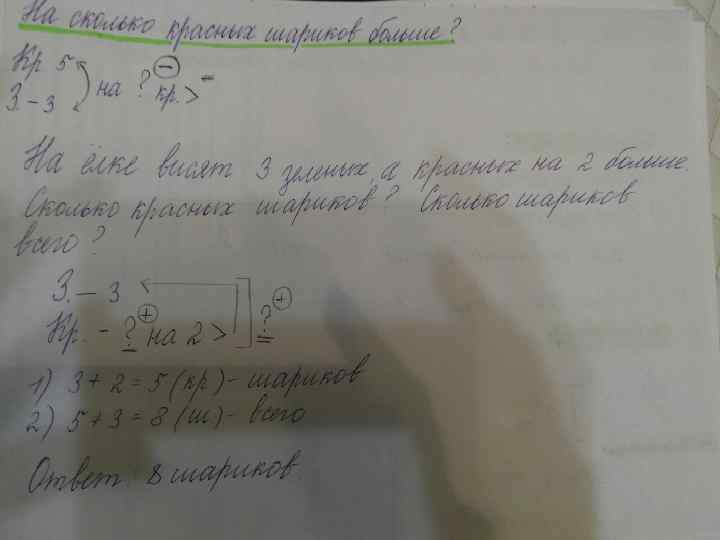 На сколько красных шариков больше?
Кр 5
З. – 3 на ? кр. > –
На ёлке висят 3 зеленых, а красных на 2 больше.
Сколько красных шариков? Сколько шариков
всего?
З. – 3
Кр. – ? + на 2 > ? +
1) 3 + 2 = 5 (кр) – шариков
2) 5 + 3 = 8 (ш) – всего
Ответ: 8 шариков.